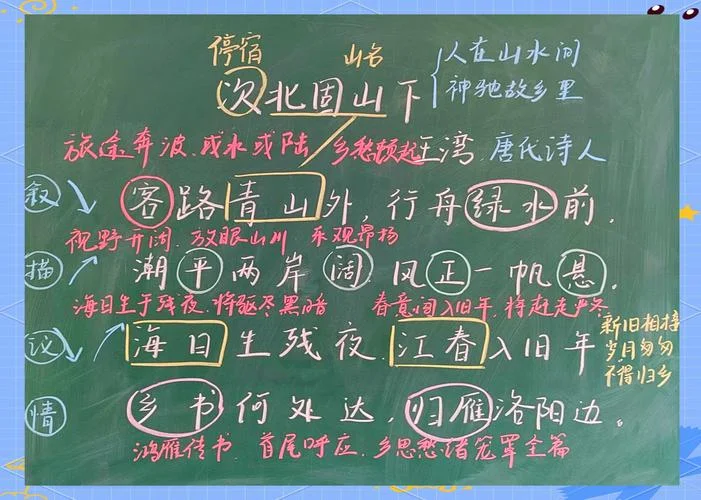 停宿 山名
人在山水间
神驰故乡里
次北固山下
旅途奔波,或水或陆 乡愁顿起
王湾 唐代诗人
叙
客路青山外,行舟绿水前。
视野开阔 放眼山川 乐观昂扬
描
潮平两岸阔,风正一帆悬。
海日生于残夜,将驱尽黑暗 春意闯入旧年,将赶走严冬
议
海日生残夜,江春入旧年
新旧相接
岁月匆匆
不得归乡
情
乡书何处达,归雁洛阳边。
鸿雁传书 首尾呼应,乡思愁绪笼罩全篇